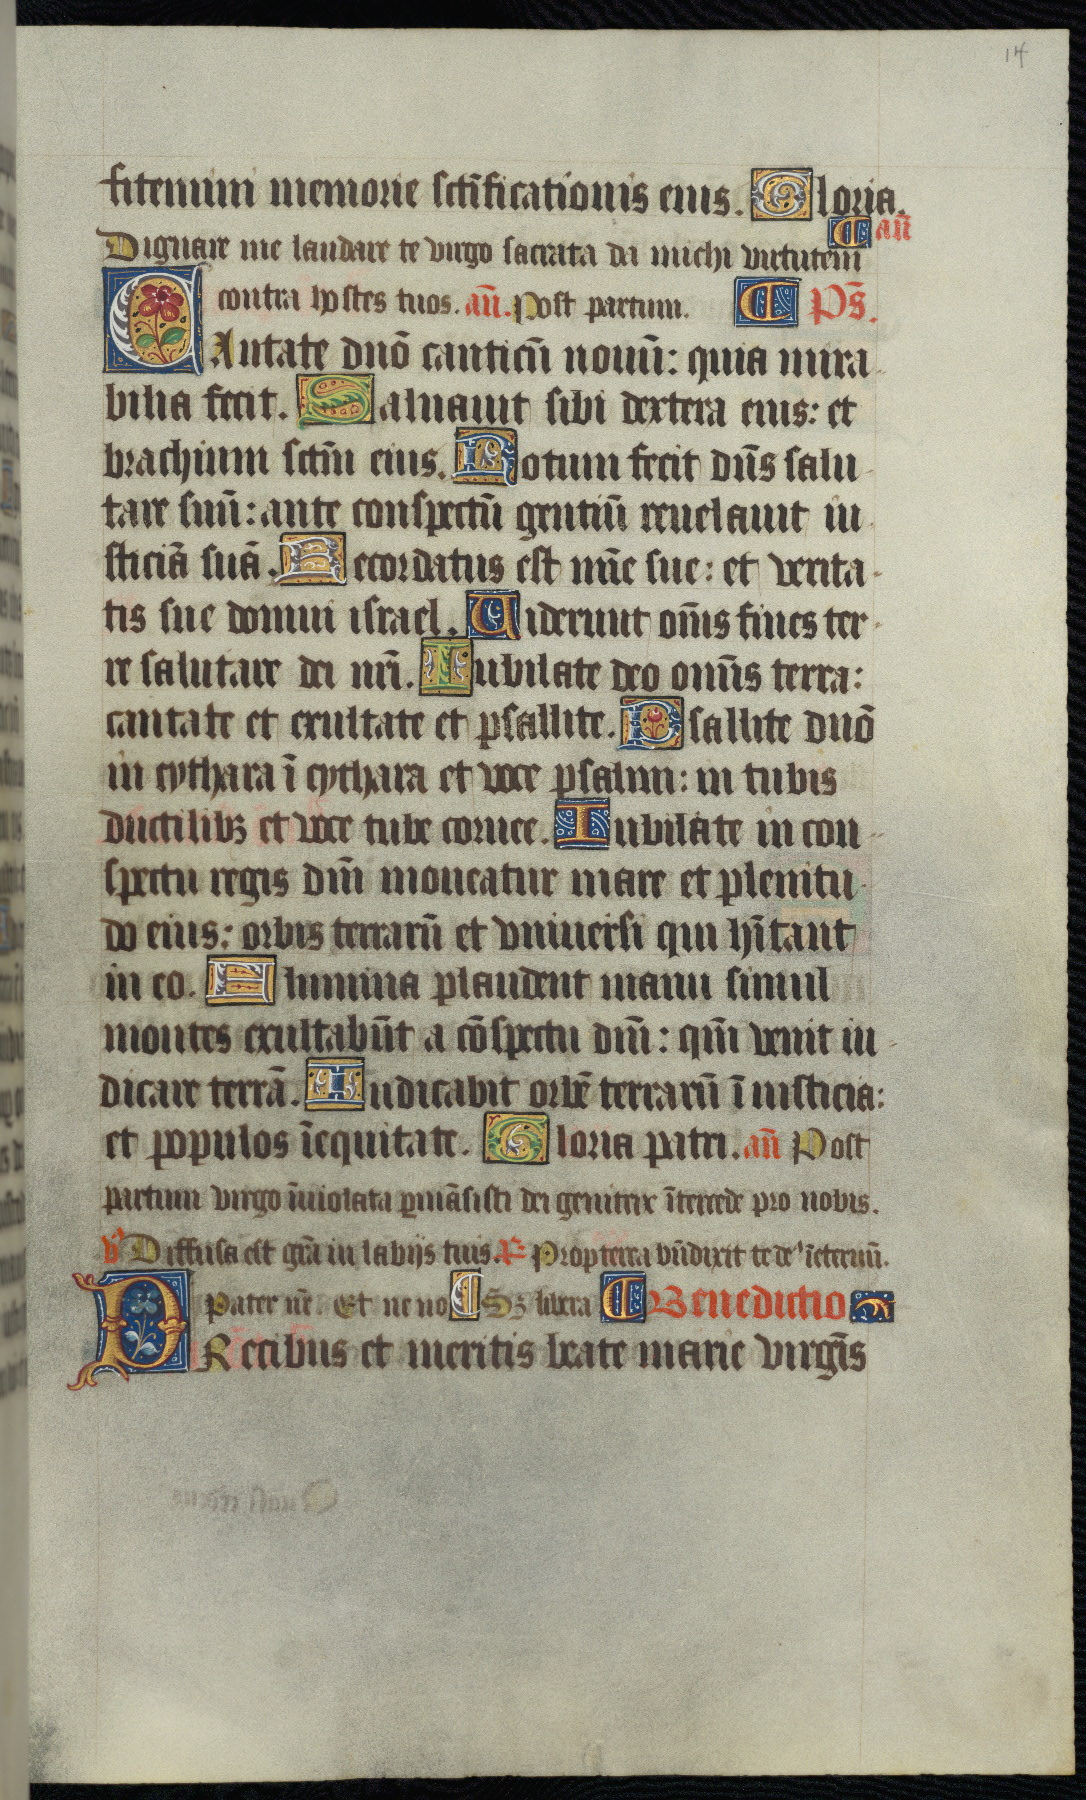 14
fitemini memorie sctīficationis eius. Gloria.
an̄
Dignare me laudare te virgo sacrata da michi virtutem
contra hostes tuos. an̄. Post partum. Ps̄.
Cantate dn̄o canticū nouū: quia mira
bilia fecit. Saluauit sibi dextera eius: et
brachium sctm̄ eius. Notum fecit dn̄s salu
tare suū: ante conspectū gentiū reuelauit iu
sticiā suā. Recordatus est mīe sue: et verita
tis sue domui israel. Viderunt om̄s fines ter
re salutare dei nr̄i. Iubilate deo omn̄s terra:
cantate et exultate et psallite. Psallite dn̄o
in cythara ī cythara et voce psalmi: in tubis
ductilibꝫ et voce tube cornee. Iubilate in con
spectu regis dn̄i moueatur mare et plenitu
do eius: orbis terrarū et vniuersi qui hītant
in eo. Flumina plaudent manu simul
montes exultabūt a cōspectu dn̄i: qm̄ venit iu
dicare terrā. Iudicabit orbē terrarū ī iusticia:
et populos īequitate. Gloria patri. an̄ Post
partum virgo īuiolata ꝑmāsisti dei genitrix ītercede pro nobis.
v̄ Diffusa est grā in labijs tuis. R̄ Propterea bn̄dixit te de' īeternū.
Pater nr̄. Et ne no Sꝫ libera Benedictio
Precibus et meritis beate marie virgīs